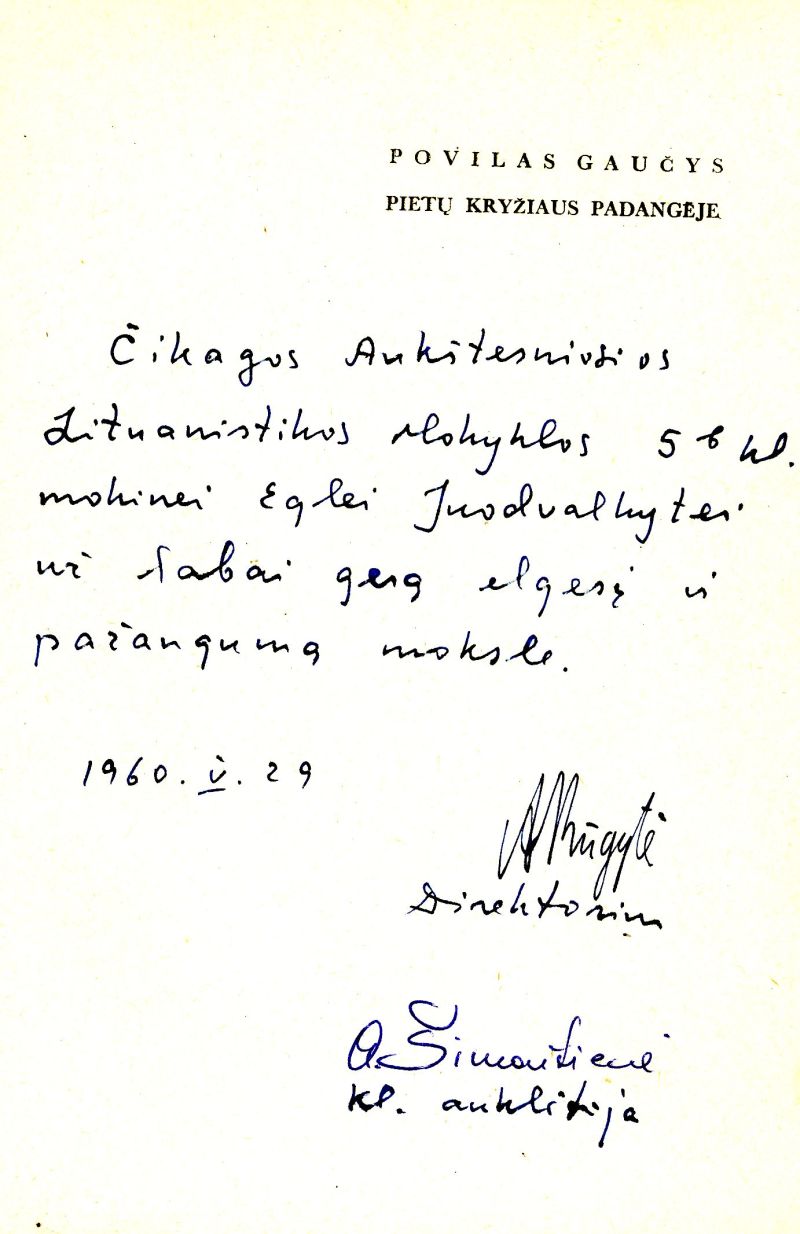 POVILAS GAUČYS
PIETŲ KRYŽIAUS PADANGĖJE
Čikagos Aukštesniosios
Lituanistikos Mokyklos 5 b kl.
mokinei Eglei Juodvalkytei
už labai gerą elgesį ir
pažangumą moksle.
1960. V. 29
A Rūgytė
Direktorius
A. Šimaitienė
kl. auklėtoja